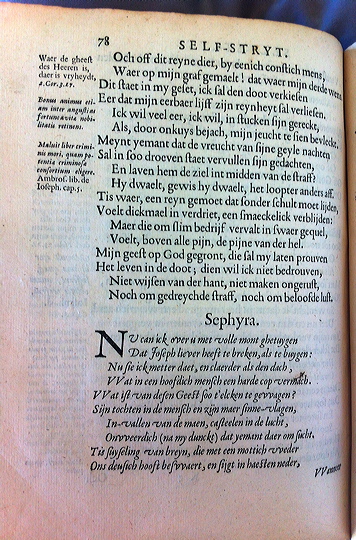 78
SELF-STRYT.
Waer de gheest
des Heeren is,
daer is vryheydt,
2. Cor. 3. 17.
Bonus animus eti-
am inter angustias
fortunæ vita nobi-
litatis retinens.
Maluit liber crimi-
nis mori, quam po-
tentia criminosæ
consortium eligere.
Ambros. lib. de
Ioseph. cap. 5.
Och off dit reyne dier, by eenich constich mens,
Waer op mijn graf gemaelt! dat waer mijn derde wens.
Dit staet in my geset, ick sal den doot verkiesen
Eer dat mijn eerbaer lijff zijn reynheyt sal verliesen.
Ick wil veel eer, ick wil, in stucken sijn gereckt,
Als, door onkuys bejach, mijn jeucht te sien bevleckt.
Meynt yemant dat de vreucht van sijne geyle nachten
Sal in soo droeven staet vervullen sijn gedachten,
En laven hem de ziel int midden van de straff?
Hy dwaelt, gewis hy dwaelt, het loopter anders aff.
Tis waer, een reyn gemoet dat sonder schult moet lijden,
Voelt dickmael in verdriet, een smaeckelick verblijden:
Maer die om slim bedrijf vervalt in swaer gequel,
Voelt, boven alle pijn, de pijne van der hel.
Mijn geest op God gegront, die sal my laten prouven
Het leven in de doot; dien wil ick niet bedrouven,
Niet wijsen van der hant, niet maken ongerust,
Noch om gedreychde straff, noch om beloofde lust.
Sephyra.
NU can ick over u met volle mont ghetuygen
Dat Joseph liever heeft te breken, als te buygen:
Nu sie ick metter daet, en claerder als den dach,
VVat in een hoofdich mensch een harde cop vermach.
VVat ist van desen Geest soo t'elcken te gevvagen?
Sijn tochten in de mensch en zijn maer sinne-vlagen,
In-vallen van de maen, casteelen in de lucht,
Onvveerdich (na my dunckt) dat yemant daer om sucht.
Tis suyseling van breyn, die met een mottich vvoeder
Ons deusich hooft besvvaert, en sijgt in haesten neder,